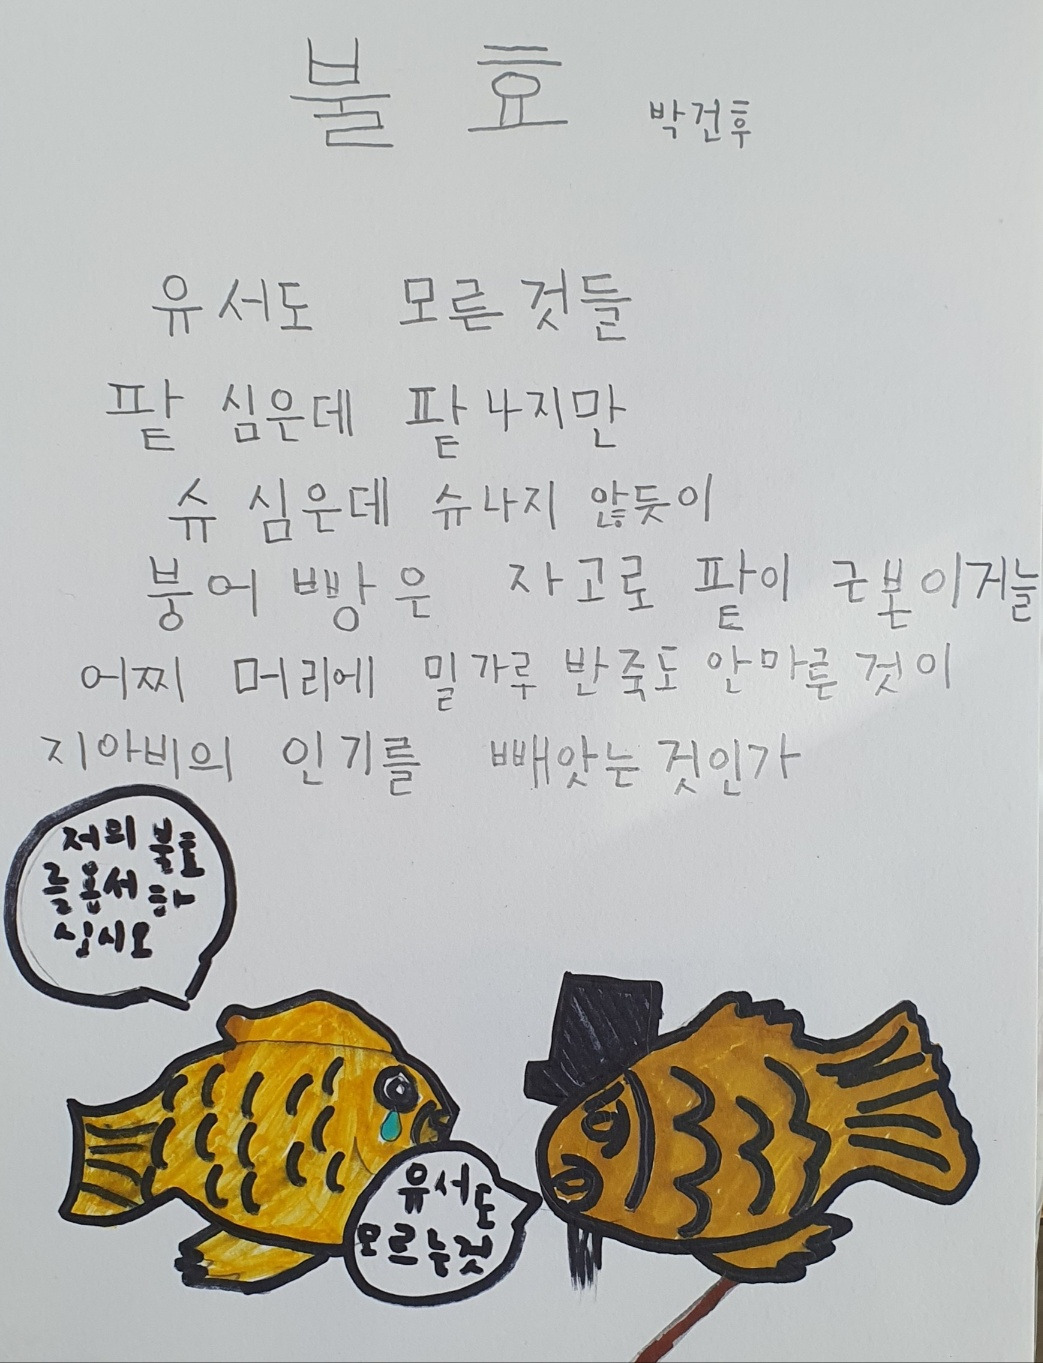 불효
박건후
유서도 모른것들
팥 심은데 팥나지만
슈 심은데 슈나지 않듯이
붕어빵은 자고로 팥이 근본이거늘
어찌 머리에 밀가루 반죽도 안마른 것이
지아비의 인기를 빼앗는것인가
저의 불효
를 용서하
십시오
유서도
모르는것